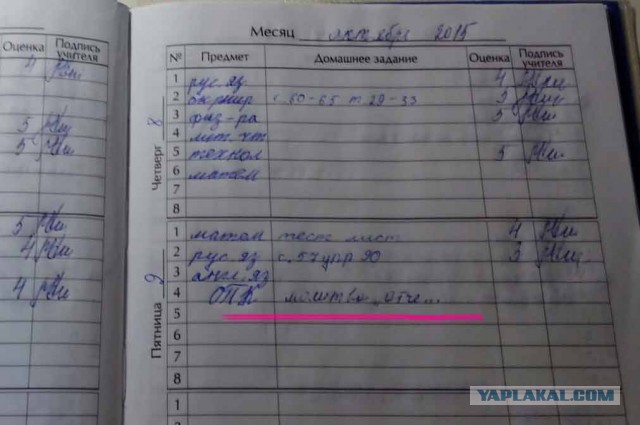 Оценка Подпись учителя
4
5
5
5
4
4
Месяц октябрь 2015
№ Предмет Домашнее задание Оценка Подпись учителя
Четверг 8
1 рус.яз 4
2 окр мир с 60-65 т 29-33 3
3 физ-ра 5
4 лит.чт.
5 технол 5
6 матем
7
8
Пятница 9
1 матем тест лист 4
2 рус.яз с.57 упр 90 3
3 англ.яз
4 ОПК молитва „отче...
5
6
7
8
1
YAPLAKAL.COM